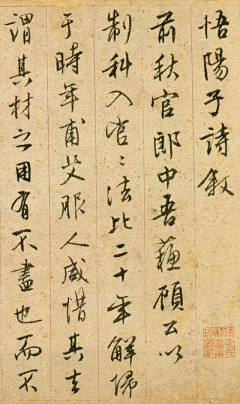 悟陽子詩敘
前秋官郎中吾蘓顧公以
制科入官〻法比二十年解歸
于時年甫艾服人咸惜其去
謂其材之用有不盡也而不